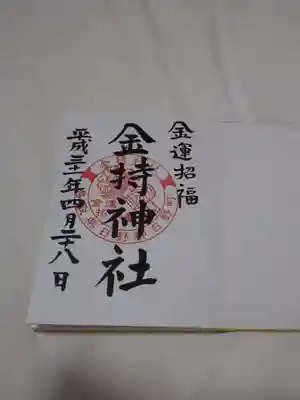 金運招福
金持神社
平成三十一年四月二十八日